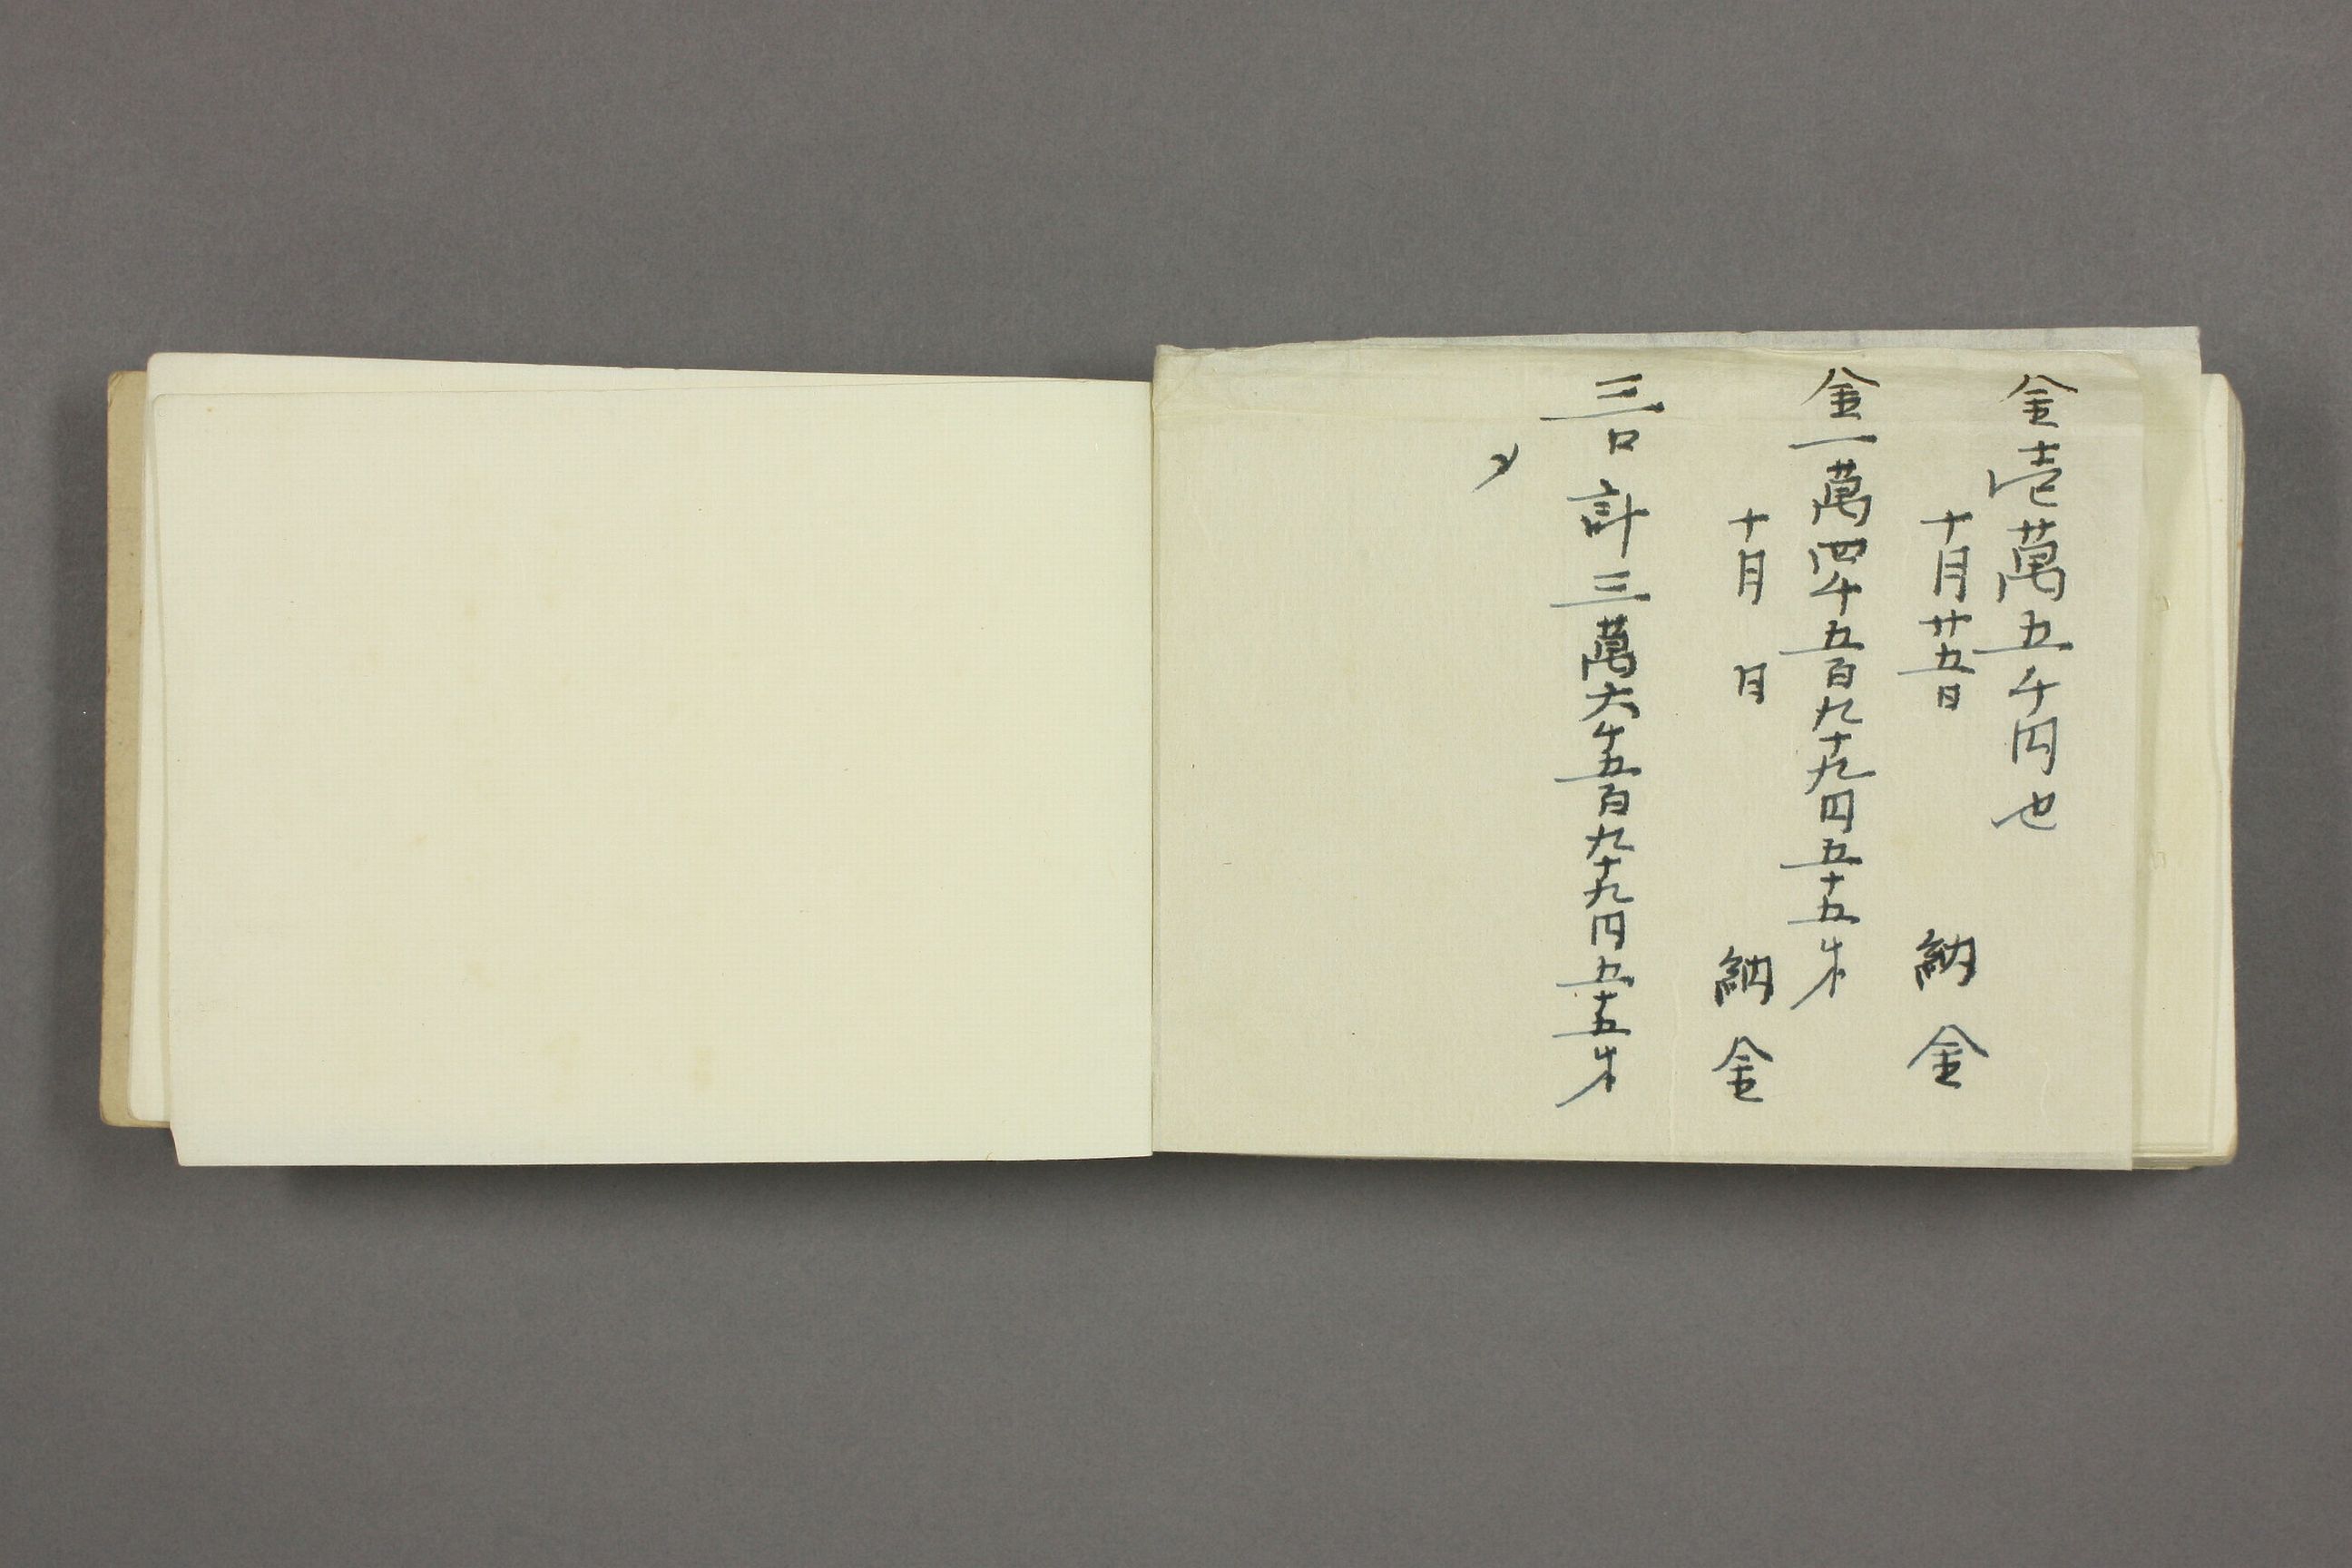 金壱萬五千円也
十月廿五日 納金
金一萬四千五百九十九円五十五朱
十月 日 納金
三口計三萬六千五百九十九円五十五朱